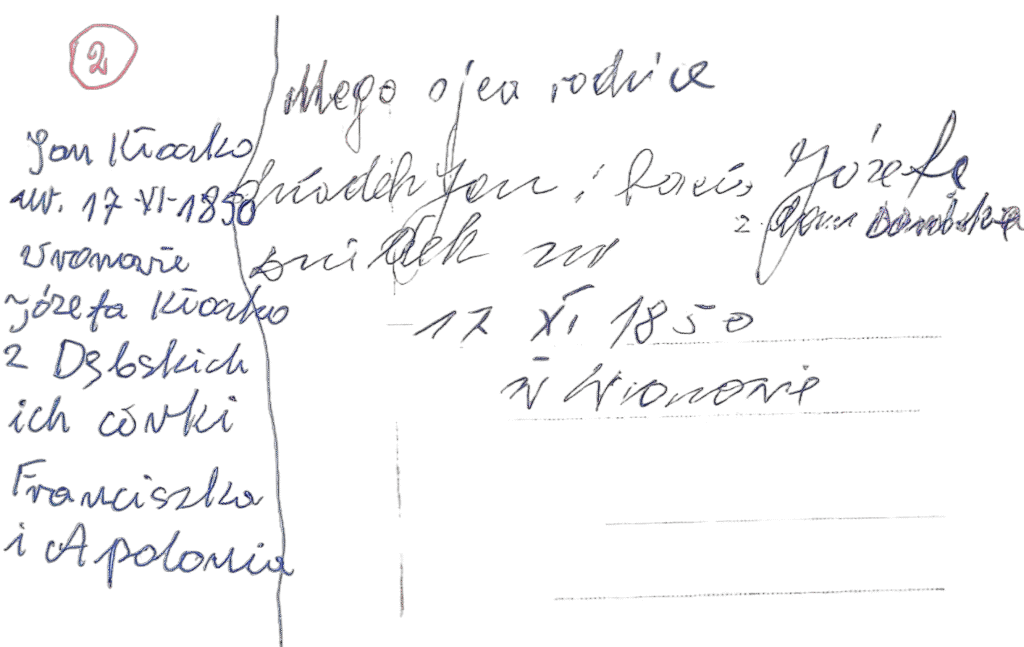 2
Jan Kłosko
ur. 17-VI-1850
Wronowie
Józefa Kłosko
z Dąbskich
ich córki
Franciszka
i Apolonia
Mego ojca rodzice
dziadek Jan i babcia Józefa
z domu
dziadek ur
17 XI 1850
w Wronowie